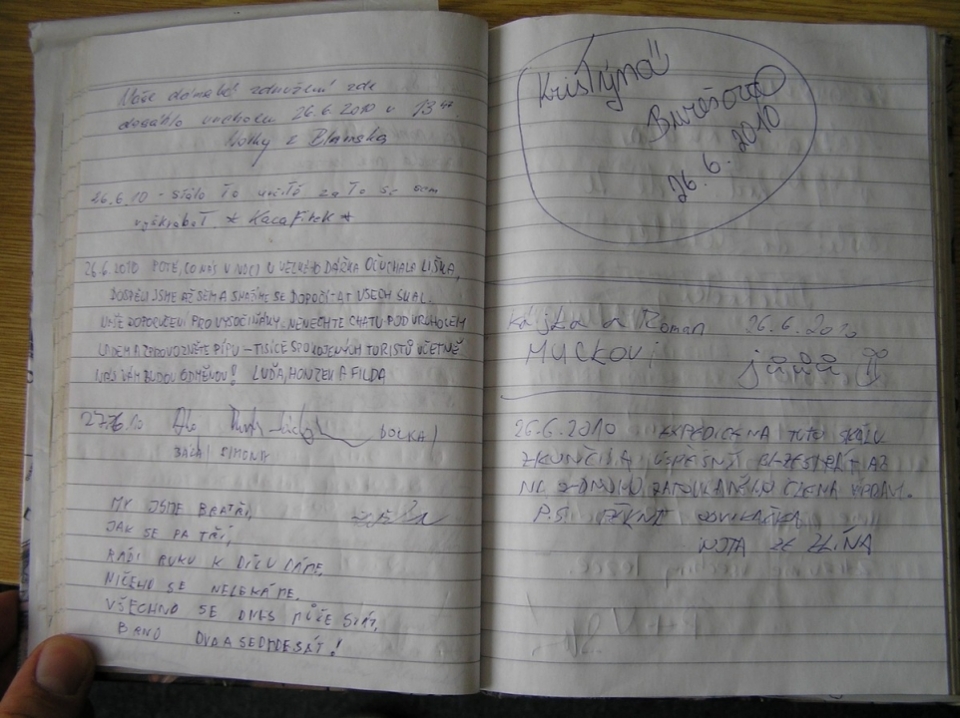 Naše dámské združení zde
dosáhlo vrcholu 26.6.2010 v 13
Notky z Blanska
26.6.10 - stálo to určitě za to se sem
vyškrabat. * KacaFítek *
26.6.2010 POTÉ, CO NÁS V NOCI U VELKÉHO DÁŘKA OČUCHALA LIŠKA,
DOSPĚLI JSME AŽ SEM A SNAŽÍME SE DOPOČÍTAT VŠECH SKAL.
NAŠE DOPORUČENÍ PRO VYSOČIŇÁKY: NENECHTE CHATU POD VRCHOLEM
LADEM A ZPROVOZNĚTE PÍPU - TISÍCE SPOKOJENÝCH TURISTŮ VČETNĚ
NÁS VÁM BUDOU ODMĚNOU! LUĎA, HONZEK A FILDA
27.6.10
MY JSME BRATŘI,
JAK SE PATŘÍ,
RÁDI RUKU K DÍLU DÁME,
NIČEHO SE NELEKÁME.
VŠECHNO SE DNES MŮŽE STÁT,
BRNO DVAASEDMDESÁT!
Kristýna
Burešová
26.6.2010
Kájka a Roman 26.6.2010
MUCKOVI
jana
26.6.2010 EXPEDICE NA TUTO SKÁLU
ZKONČILA ÚSPĚŠNĚ
P.S. PĚKNÁ
ZE ZLÍNA